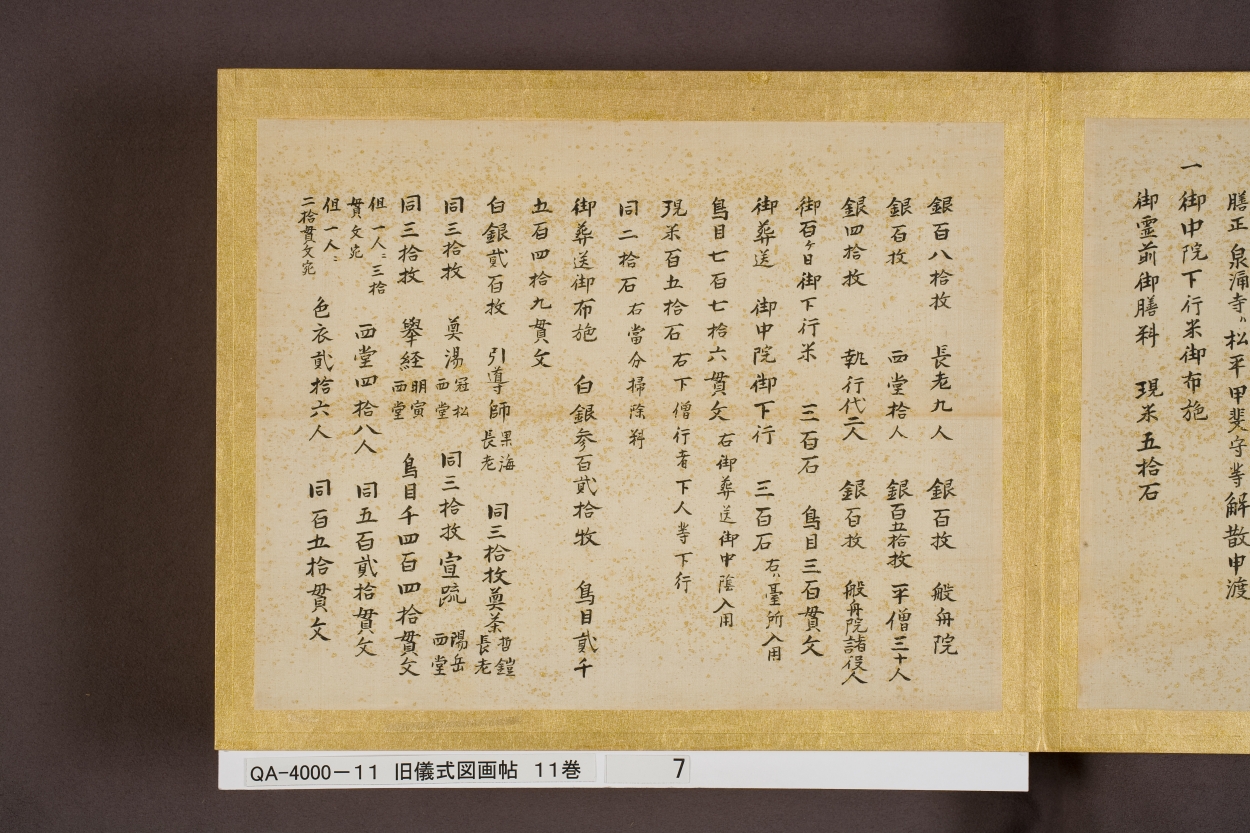 膳正泉涌寺ハ松平甲斐守等解散申渡
一 御中院下行米御布施
御霊前御膳料 現米五拾石
銀百八拾枚 長老九人 銀百枚 般舟院
銀百枚 西堂拾人 銀百五拾枚 平僧三十人
銀四拾枚 執行代二人 銀百枚 般舟院諸役人
御百ケ日御下行米 三百石 鳥目三百貫文
御葬送 御中院御下行 三百石 右ハ臺所入用
鳥目七百七拾六貫文 右御葬送御中陰入用
現米百五拾石 右下僧行者下人等下行
同二拾石 右當分掃除料
御葬送御布施 白銀参百貳拾牧 鳥目貳千
五百四拾九貫文
白銀貳百枚 引導師 果海長老 同三拾枚 奠茶 哲鎧長老
同三拾枚 奠湯 冠松西堂 同三拾枚 宣疏 陽岳西堂
同三拾枚 擧経 明寅西堂 鳥目千四百四拾貫文
但一人ニ三拾貫文宛 西堂四拾八人 同五百貳拾貫文
但一人ニ二拾貫文宛 色衣貳拾六人 同百五拾貫文
QA-4000-11 旧儀式図画帖 11巻 7